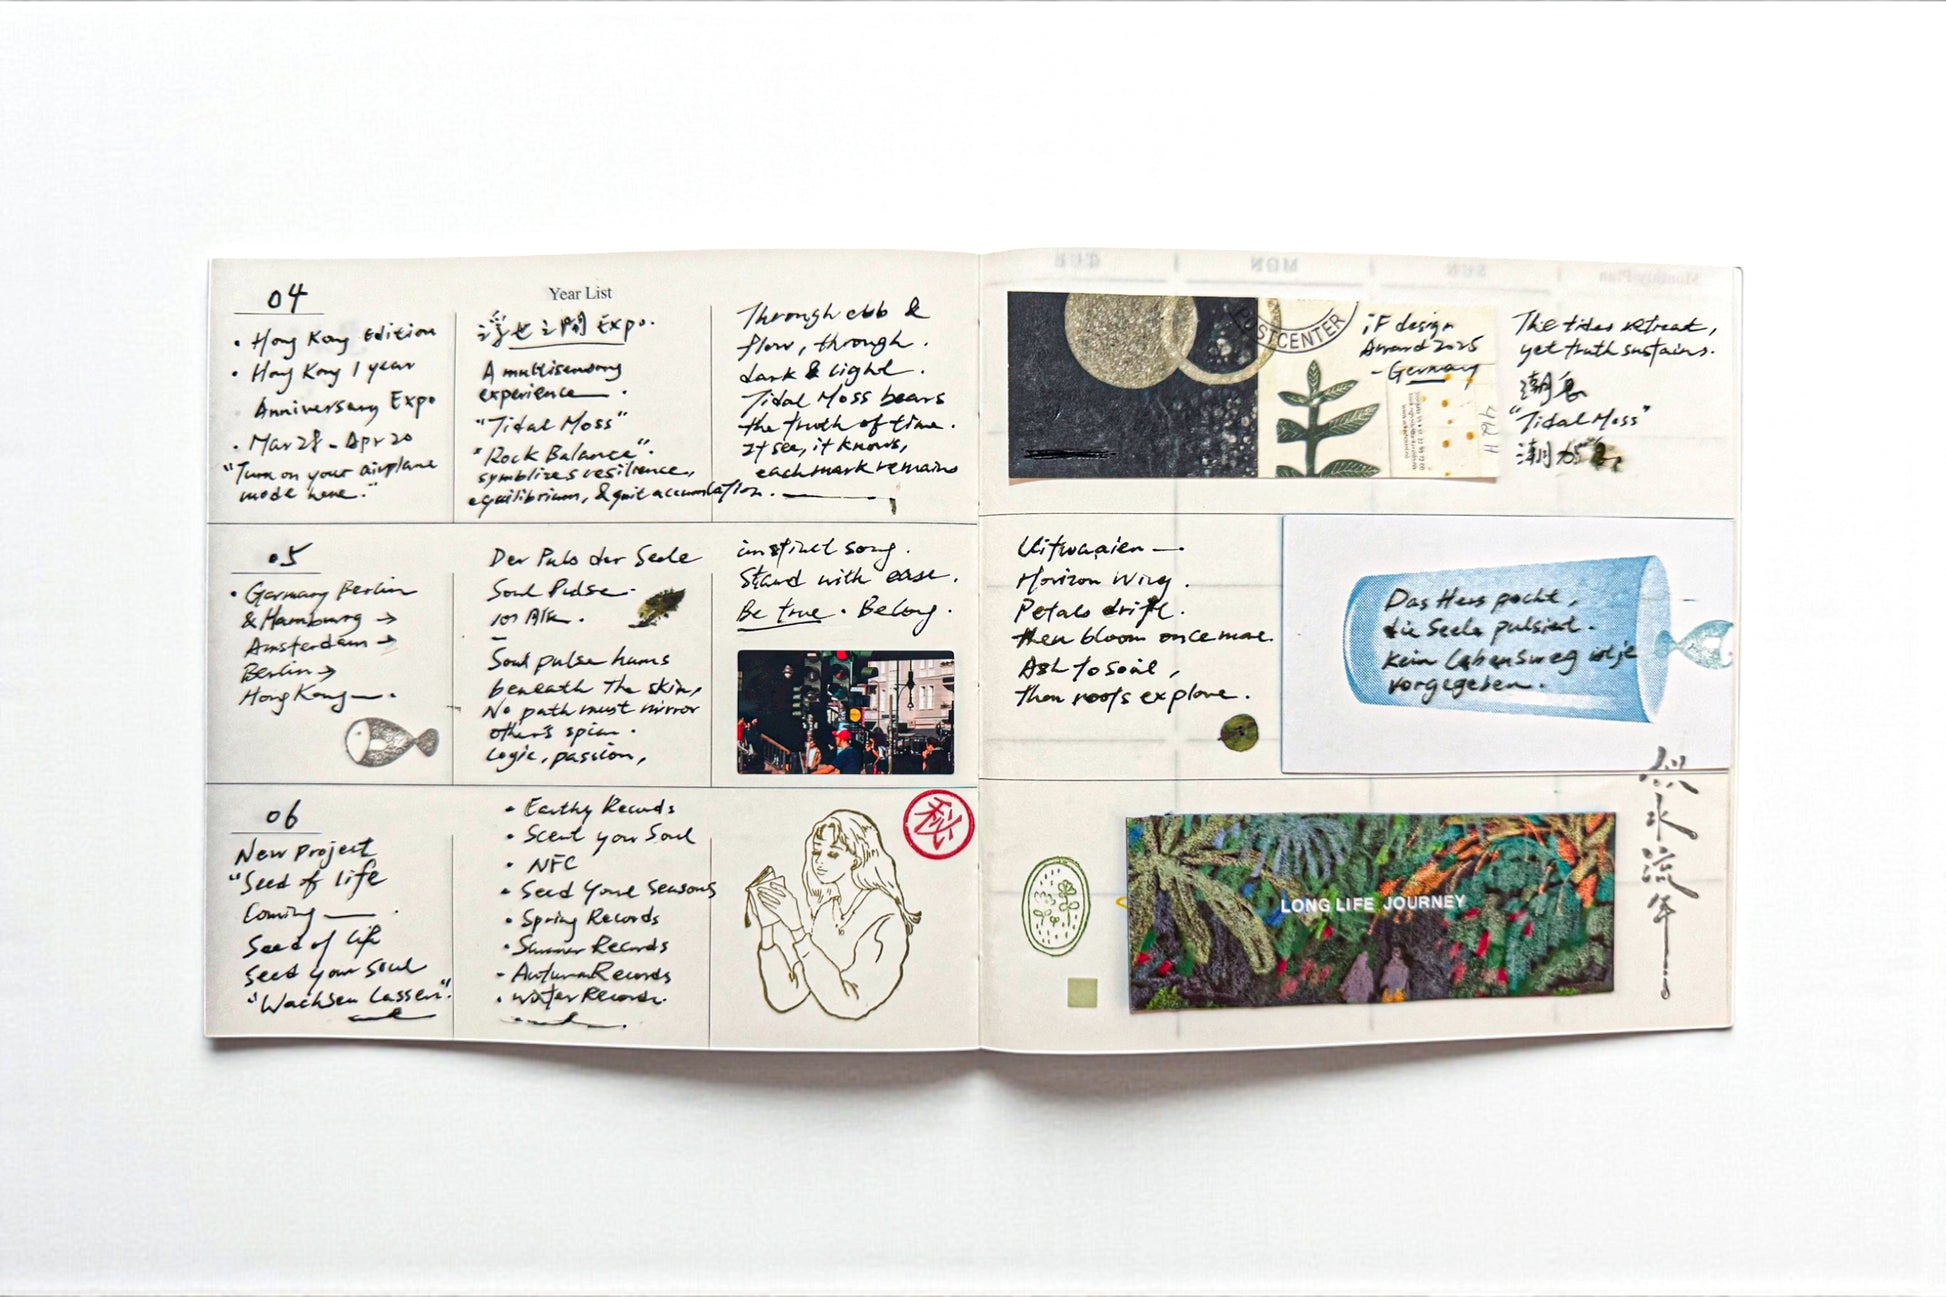 Year List
04
• Hong Kong Edition
• Hong Kong 1 year
Anniversary Expo
• Mar 28 - Apr 20
"Turn on your airplane
mode here."
Expo.
A multisensory
experience
"Tidal Moss"
"Rock Balance".
symblizes resilience,
equilibrium, & quit accumlation.
Through ebb &
flow, through.
dark & light.
Tidal Moss bears
the truth of time.
It see, it knows,
each mark remains
POSTCENTER
iF design
Award 2025
- Germany
The tides retreat,
yet truth sustains.
"Tidal Moss"
05
• Germany Berlin
& Hamburg →
Amsterdam →
Berlin →
Hong Kong — .
Der Puls der Seele
Soul Pulse.
Soul pulse hums
beneath the skin,
No path must mirror
other's spin.
Logic, passion,
instinct song.
Stand with ease.
Be true. Belong.
Uitwaaien — .
Horizon Wing.
Petals drift.
then bloom once more.
Ash to soil,
then roots explore.
Das Herz pocht,
die Seele pulsiert.
Kein Lebensweg ist je
vorgegeben.
06
New Project
"Seed of life
Coming — .
Seed of life
Seed your Soul
"Wachsen Lassen".
• Earthy Records
• Scent your Soul
• NFC
• Seed Your Seasons
• Spring Records
• Summer Records
- Autumn Records
• Winter Records.
秘
LONG LIFE JOURNEY
似水流年